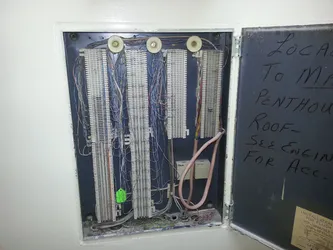 LOCA
TO MA
PENTHOU
ROOF-
SEE ENGIN
FAR ACC.